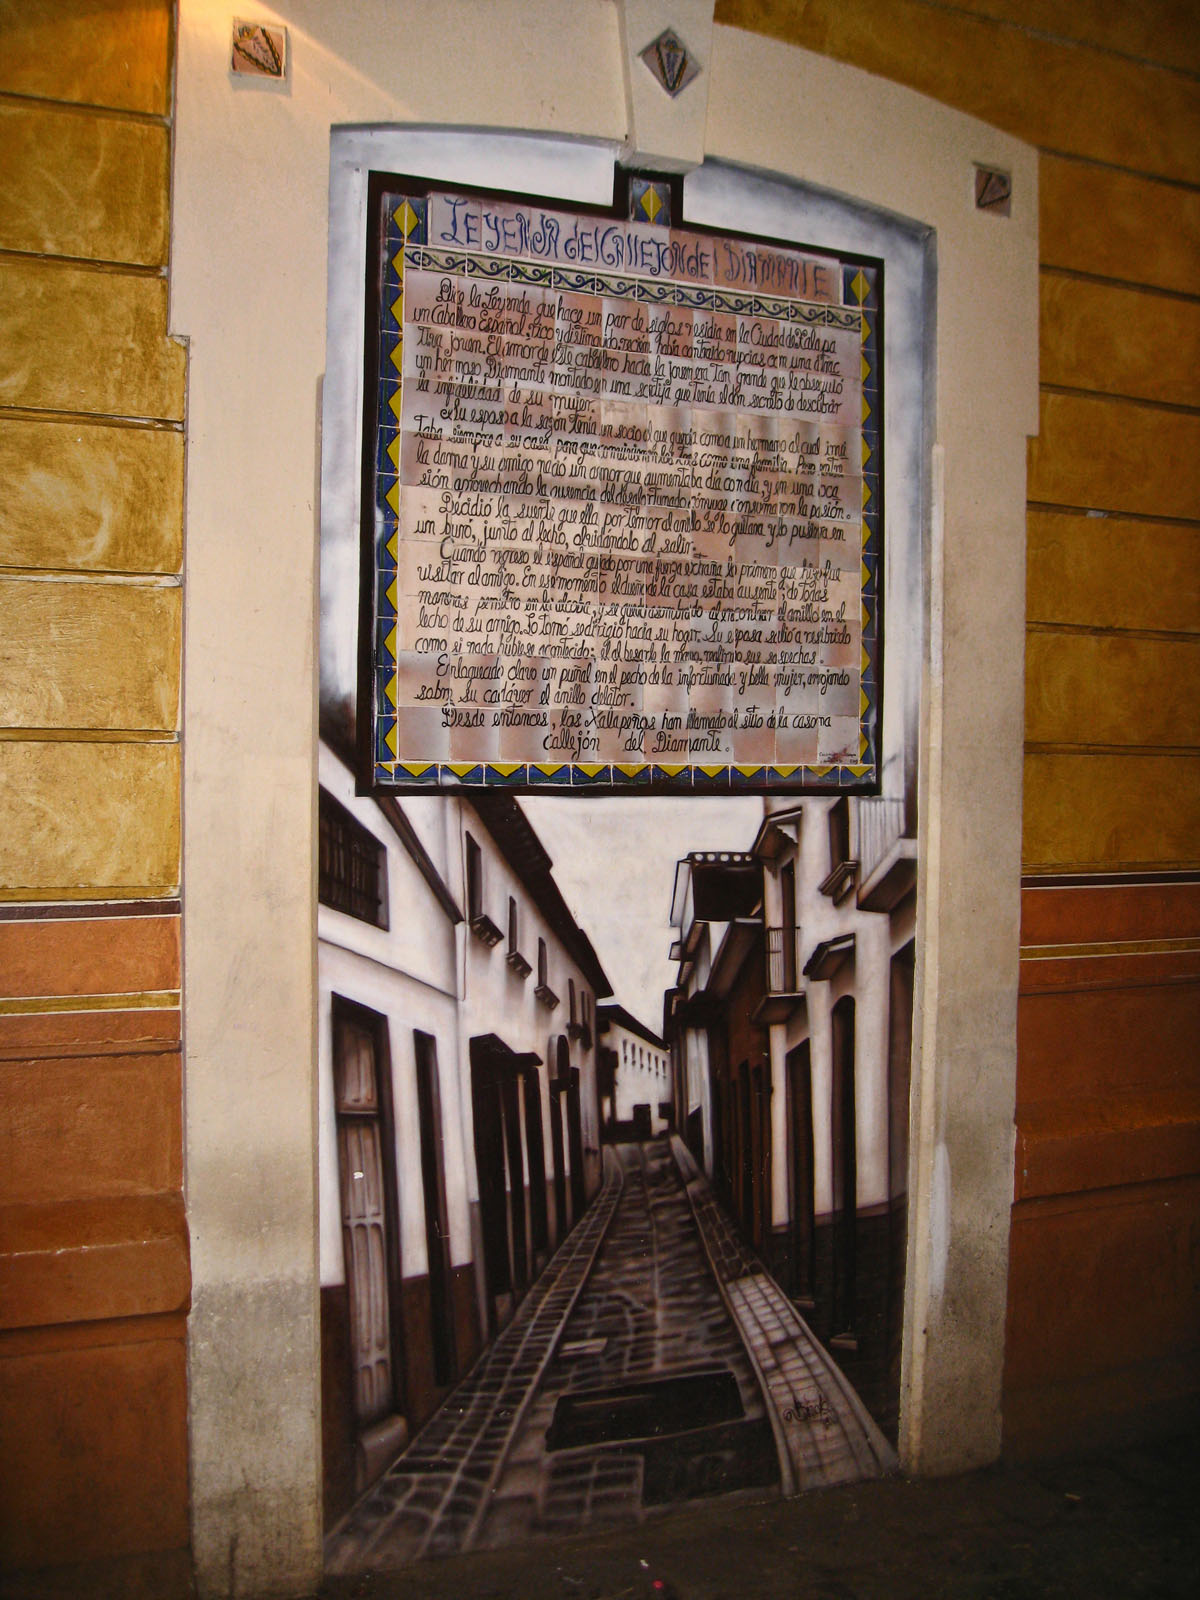 LEYENDA dEl CAllEJON dEl DiAMANTE
Dice la Leyenda que hace un par de siglos residia en la Ciudad de Xalapa
un Caballero Español, rico y distinguido, recien habia contraido nupcias con una atrac
tiva joven. El amor de este caballero hacia la joven era tan grande que le obsequió
un hermoso Diamante montado en una sortija que tenía el don secreto de descubrir
la infidelidad de su mujer.
Su esposo a la sazón tenía un socio al que quería como a un hermano al cual invi
taba siempre a su casa, para que convivieran los tres como una familia. Pero entre
la dama y su amigo nació un amor que aumentaba dia con dia, y en una oca
sión aprovechando la ausencia del desafortunado cónyuge consumaron la pasión.
Decidió la suerte que ella por temor al anillo se lo quitara y lo pusiera en
un buró, junto al lecho, olvidándolo al salir.
Cuando regreso el español guiado por una fuerza extraña lo primero que hizo fue
visitar al amigo. En ese momento el dueño de la casa estaba ausente; de todas
maneras penetro en la alcoba, y se quedó asombrado al encontrar el anillo en el
lecho de su amigo. Lo tomó se dirigió hacia su hogar. Su esposa salió a recibirlo
como si nada hubiese acontecido; él al besarle la mano, reafirmo sus sospechas.
Enloquecido clavo un puñal en el pecho de la infortunada y bella mujer, arrojando
sobre su cadáver el anillo delator.
Desde entonces, los Xalapeños han llamado al sitio de la casona
Callejón del Diamante.